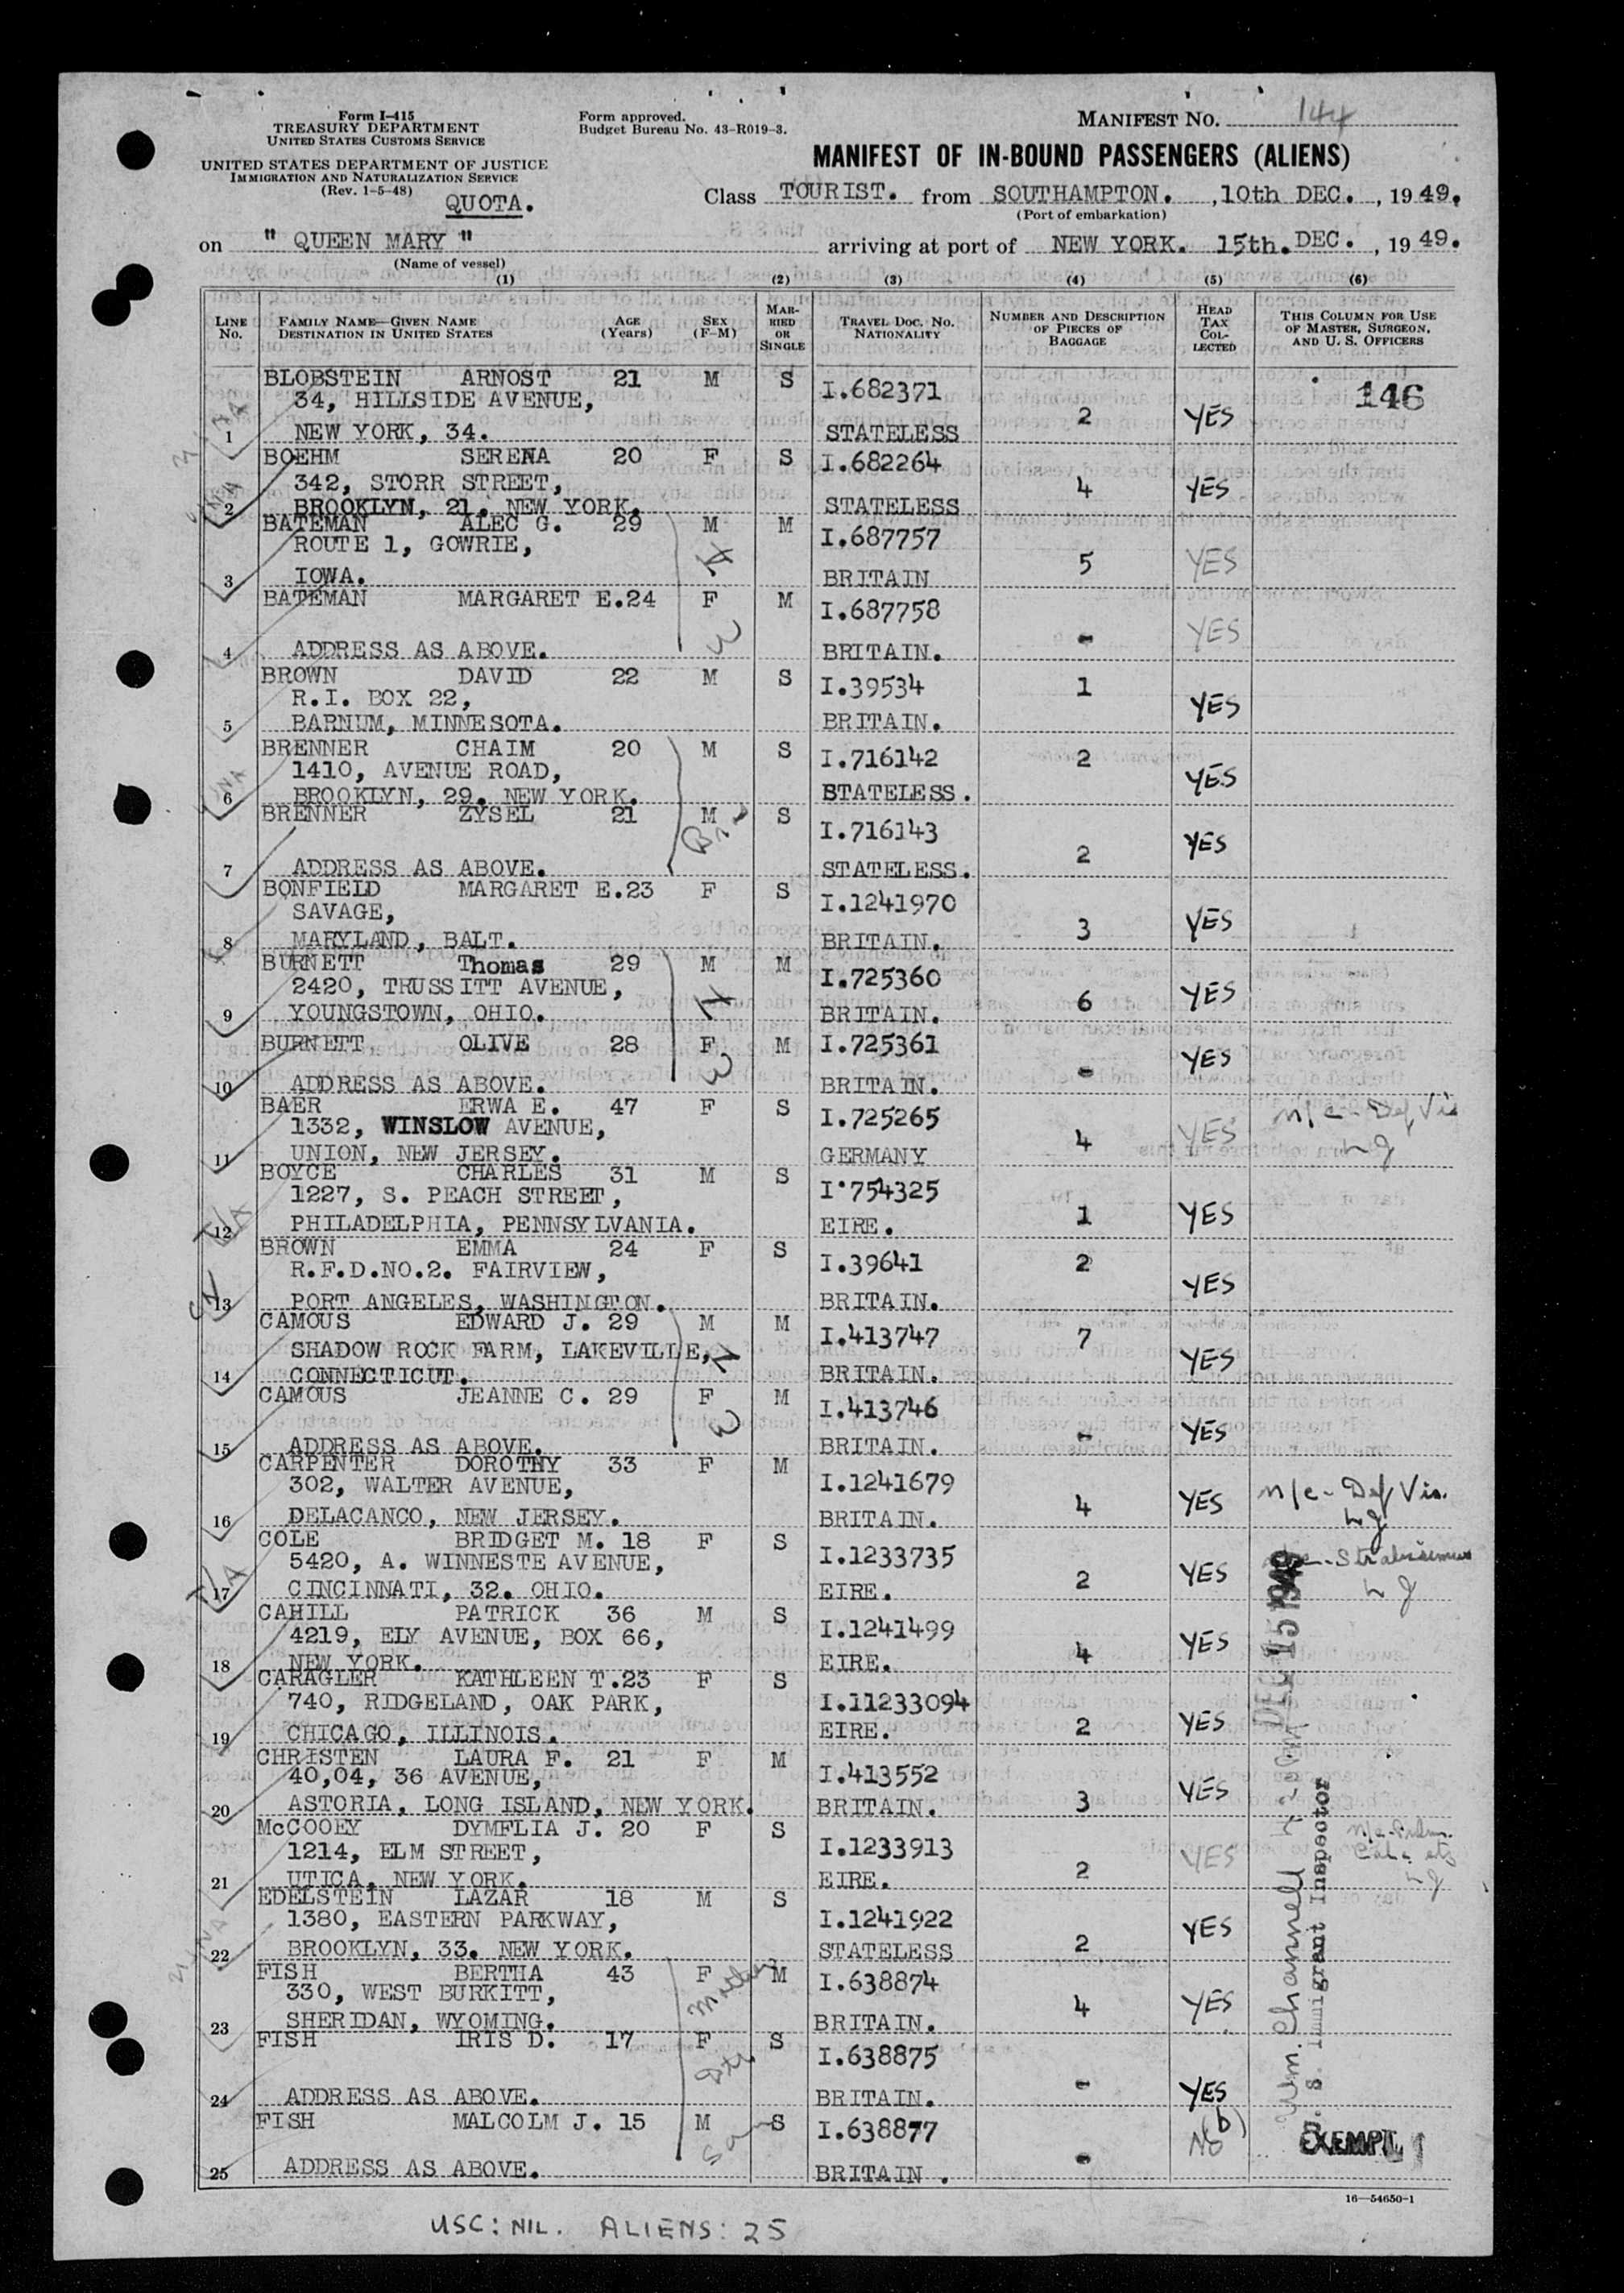 Form I-415
TREASURY DEPARTMENT
UNITED STATES CUSTOMS SERVICE
UNITED STATES DEPARTMENT OF JUSTICE
IMMIGRATION AND NATURALIZATION SERVICE
(Rev. 1-5-48)
QUOTA.
Form approved.
Budget Bureau No. 43-R019-3.
MANIFEST No. 144
MANIFEST OF IN-BOUND PASSENGERS (ALIENS)
Class TOURIST. from SOUTHAMPTON. , 10th DEC. , 1949.
(Port of embarkation)
on " QUEEN MARY " arriving at port of NEW YORK. 15th. DEC. , 1949.
(Name of vessel)
(1) (2) (3) (4) (5) (6)
LINE No. FAMILY NAME—GIVEN NAME DESTINATION IN UNITED STATES AGE (Years) SEX (F-M) MARRIED OR SINGLE TRAVEL DOC. NO. NATIONALITY NUMBER AND DESCRIPTION OF PIECES OF BAGGAGE HEAD TAX COLLECTED THIS COLUMN FOR USE OF MASTER, SURGEON, AND U. S. OFFICERS
BLOBSTEIN ARNOST 21 M S I.682371 146
34, HILLSIDE AVENUE, 2 YES
1 NEW YORK, 34. STATELESS
BOEHM SERENA 20 F S I.682264
342, STORR STREET, 4 YES
2 BROOKLYN, 21. NEW YORK. STATELESS
BATEMAN ALEC G. 29 M M I.687757
ROUTE 1, GOWRIE, 5 YES
3 IOWA. BRITAIN
BATEMAN MARGARET E. 24 F M I.687758
- YES
4 ADDRESS AS ABOVE. BRITAIN.
BROWN DAVID 22 M S I.39534 1
R.I. BOX 22, YES
5 BARNUM, MINNESOTA. BRITAIN.
BRENNER CHAIM 20 M S I.716142 2
1410, AVENUE ROAD, YES
6 BROOKLYN, 29. NEW YORK. STATELESS.
BRENNER ZYSEL 21 M S I.716143
2 YES
7 ADDRESS AS ABOVE. STATELESS.
BONFIELD MARGARET E. 23 F S I.1241970
SAVAGE, 3 YES
8 MARYLAND, BALT. BRITAIN.
BURNETT Thomas 29 M M I.725360
2420, TRUSSITT AVENUE, 6 YES
9 YOUNGSTOWN, OHIO. BRITAIN.
BURNETT OLIVE 28 F M I.725361
- YES
10 ADDRESS AS ABOVE. BRITAIN.
BAER ERWA E. 47 F S I.725265 n/c - Def Vis
1332, WINSLOW AVENUE, 4 YES
11 UNION, NEW JERSEY. GERMANY
BOYCE CHARLES 31 M S I.754325
1227, S. PEACH STREET, 1 YES
12 PHILADELPHIA, PENNSYLVANIA. EIRE.
BROWN EMMA 24 F S I.39641 2
R.F.D.NO.2. FAIRVIEW, YES
13 PORT ANGELES, WASHINGTON. BRITAIN.
CAMOUS EDWARD J. 29 M M I.413747 7
SHADOW ROCK FARM, LAKEVILLE, YES
14 CONNECTICUT. BRITAIN.
CAMOUS JEANNE C. 29 F M I.413746
- YES
15 ADDRESS AS ABOVE. BRITAIN.
CARPENTER DOROTHY 33 F M I.1241679
302, WALTER AVENUE, 4 YES n/c - Def Vis.
16 DELACANCO, NEW JERSEY. BRITAIN.
COLE BRIDGET M. 18 F S I.1233735 Strabismus
5420, A. WINNESTE AVENUE, 2 YES
17 CINCINNATI, 32. OHIO. EIRE.
CAHILL PATRICK 36 M S I.1241499
4219, ELY AVENUE, BOX 66, 4 YES
18 NEW YORK. EIRE.
CARAGLER KATHLEEN T. 23 F S I.11233094
740, RIDGELAND, OAK PARK, 2 YES
19 CHICAGO, ILLINOIS. EIRE.
CHRISTEN LAURA F. 21 F M I.413552
40,04, 36 AVENUE, 3 YES
20 ASTORIA, LONG ISLAND, NEW YORK. BRITAIN.
McCOOEY DYMFLIA J. 20 F S I.1233913
1214, ELM STREET, 2 YES
21 UTICA, NEW YORK. EIRE.
EDELSTEIN LAZAR 18 M S I.1241922
1380, EASTERN PARKWAY, 2 YES
22 BROOKLYN, 33. NEW YORK. STATELESS
FISH BERTHA 43 F M I.638874
330, WEST BURKITT, 4 YES
23 SHERIDAN, WYOMING. BRITAIN.
FISH IRIS D. 17 F S I.638875
- YES
24 ADDRESS AS ABOVE. BRITAIN.
FISH MALCOLM J. 15 M S I.638877
- No (b) EXEMPT
25 ADDRESS AS ABOVE. BRITAIN.
Wm. Channell
U. S. Immigrant Inspector
16—54650-1
USC: NIL. ALIENS: 25